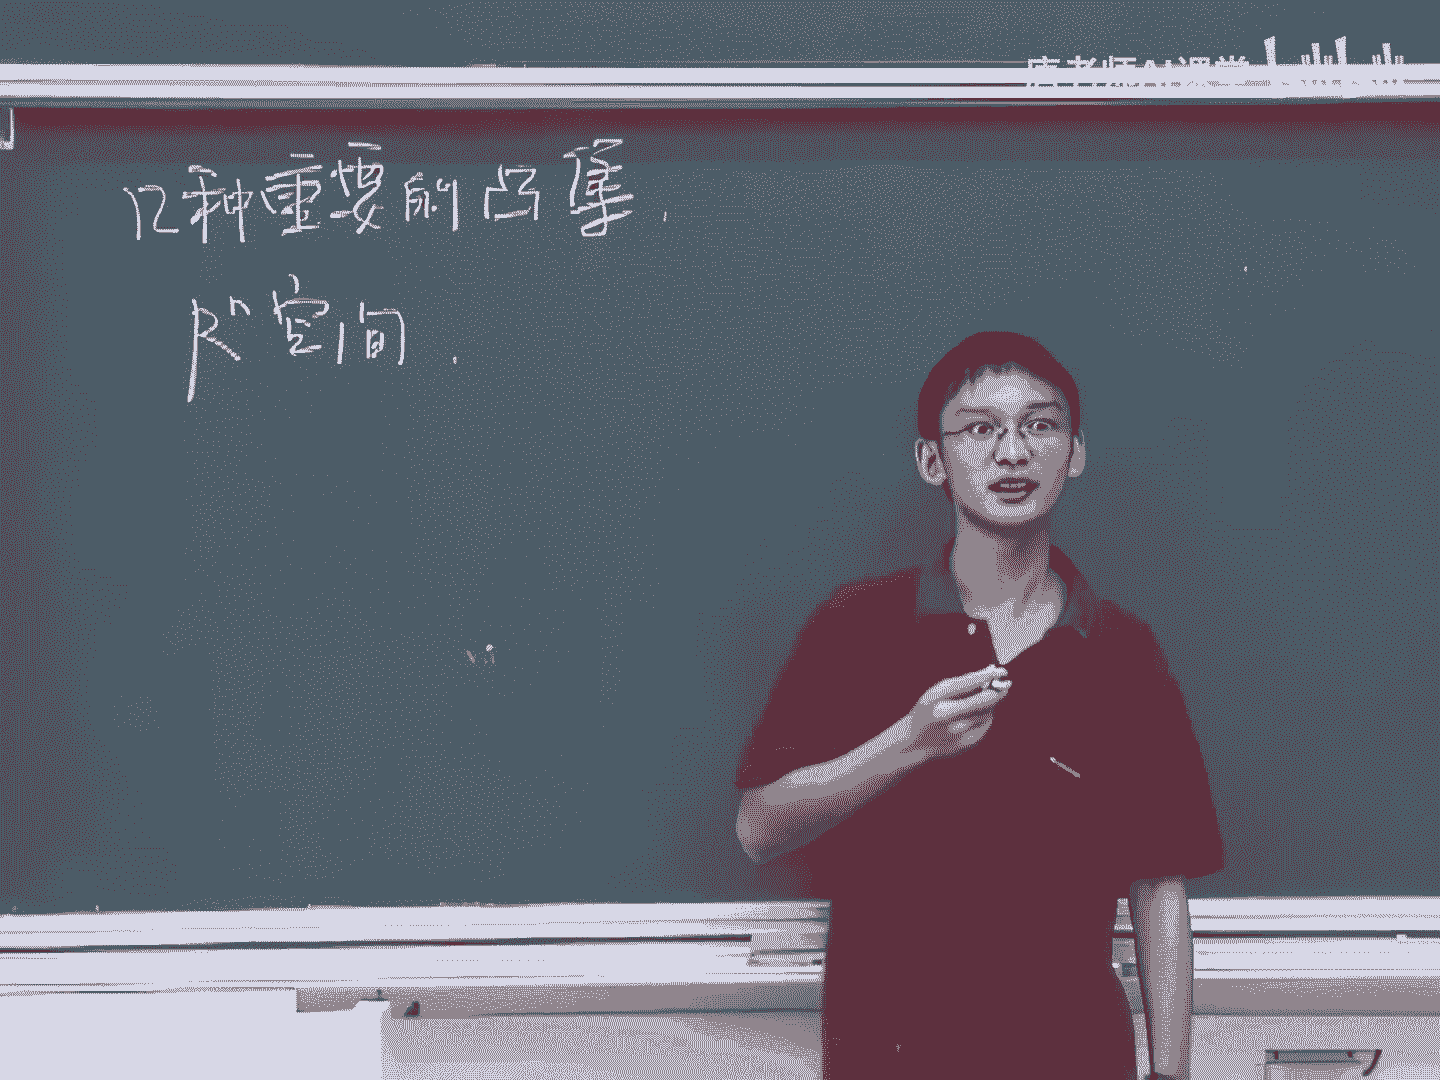 唐老师AI课堂
几种重要的凸集.
Rⁿ空间.